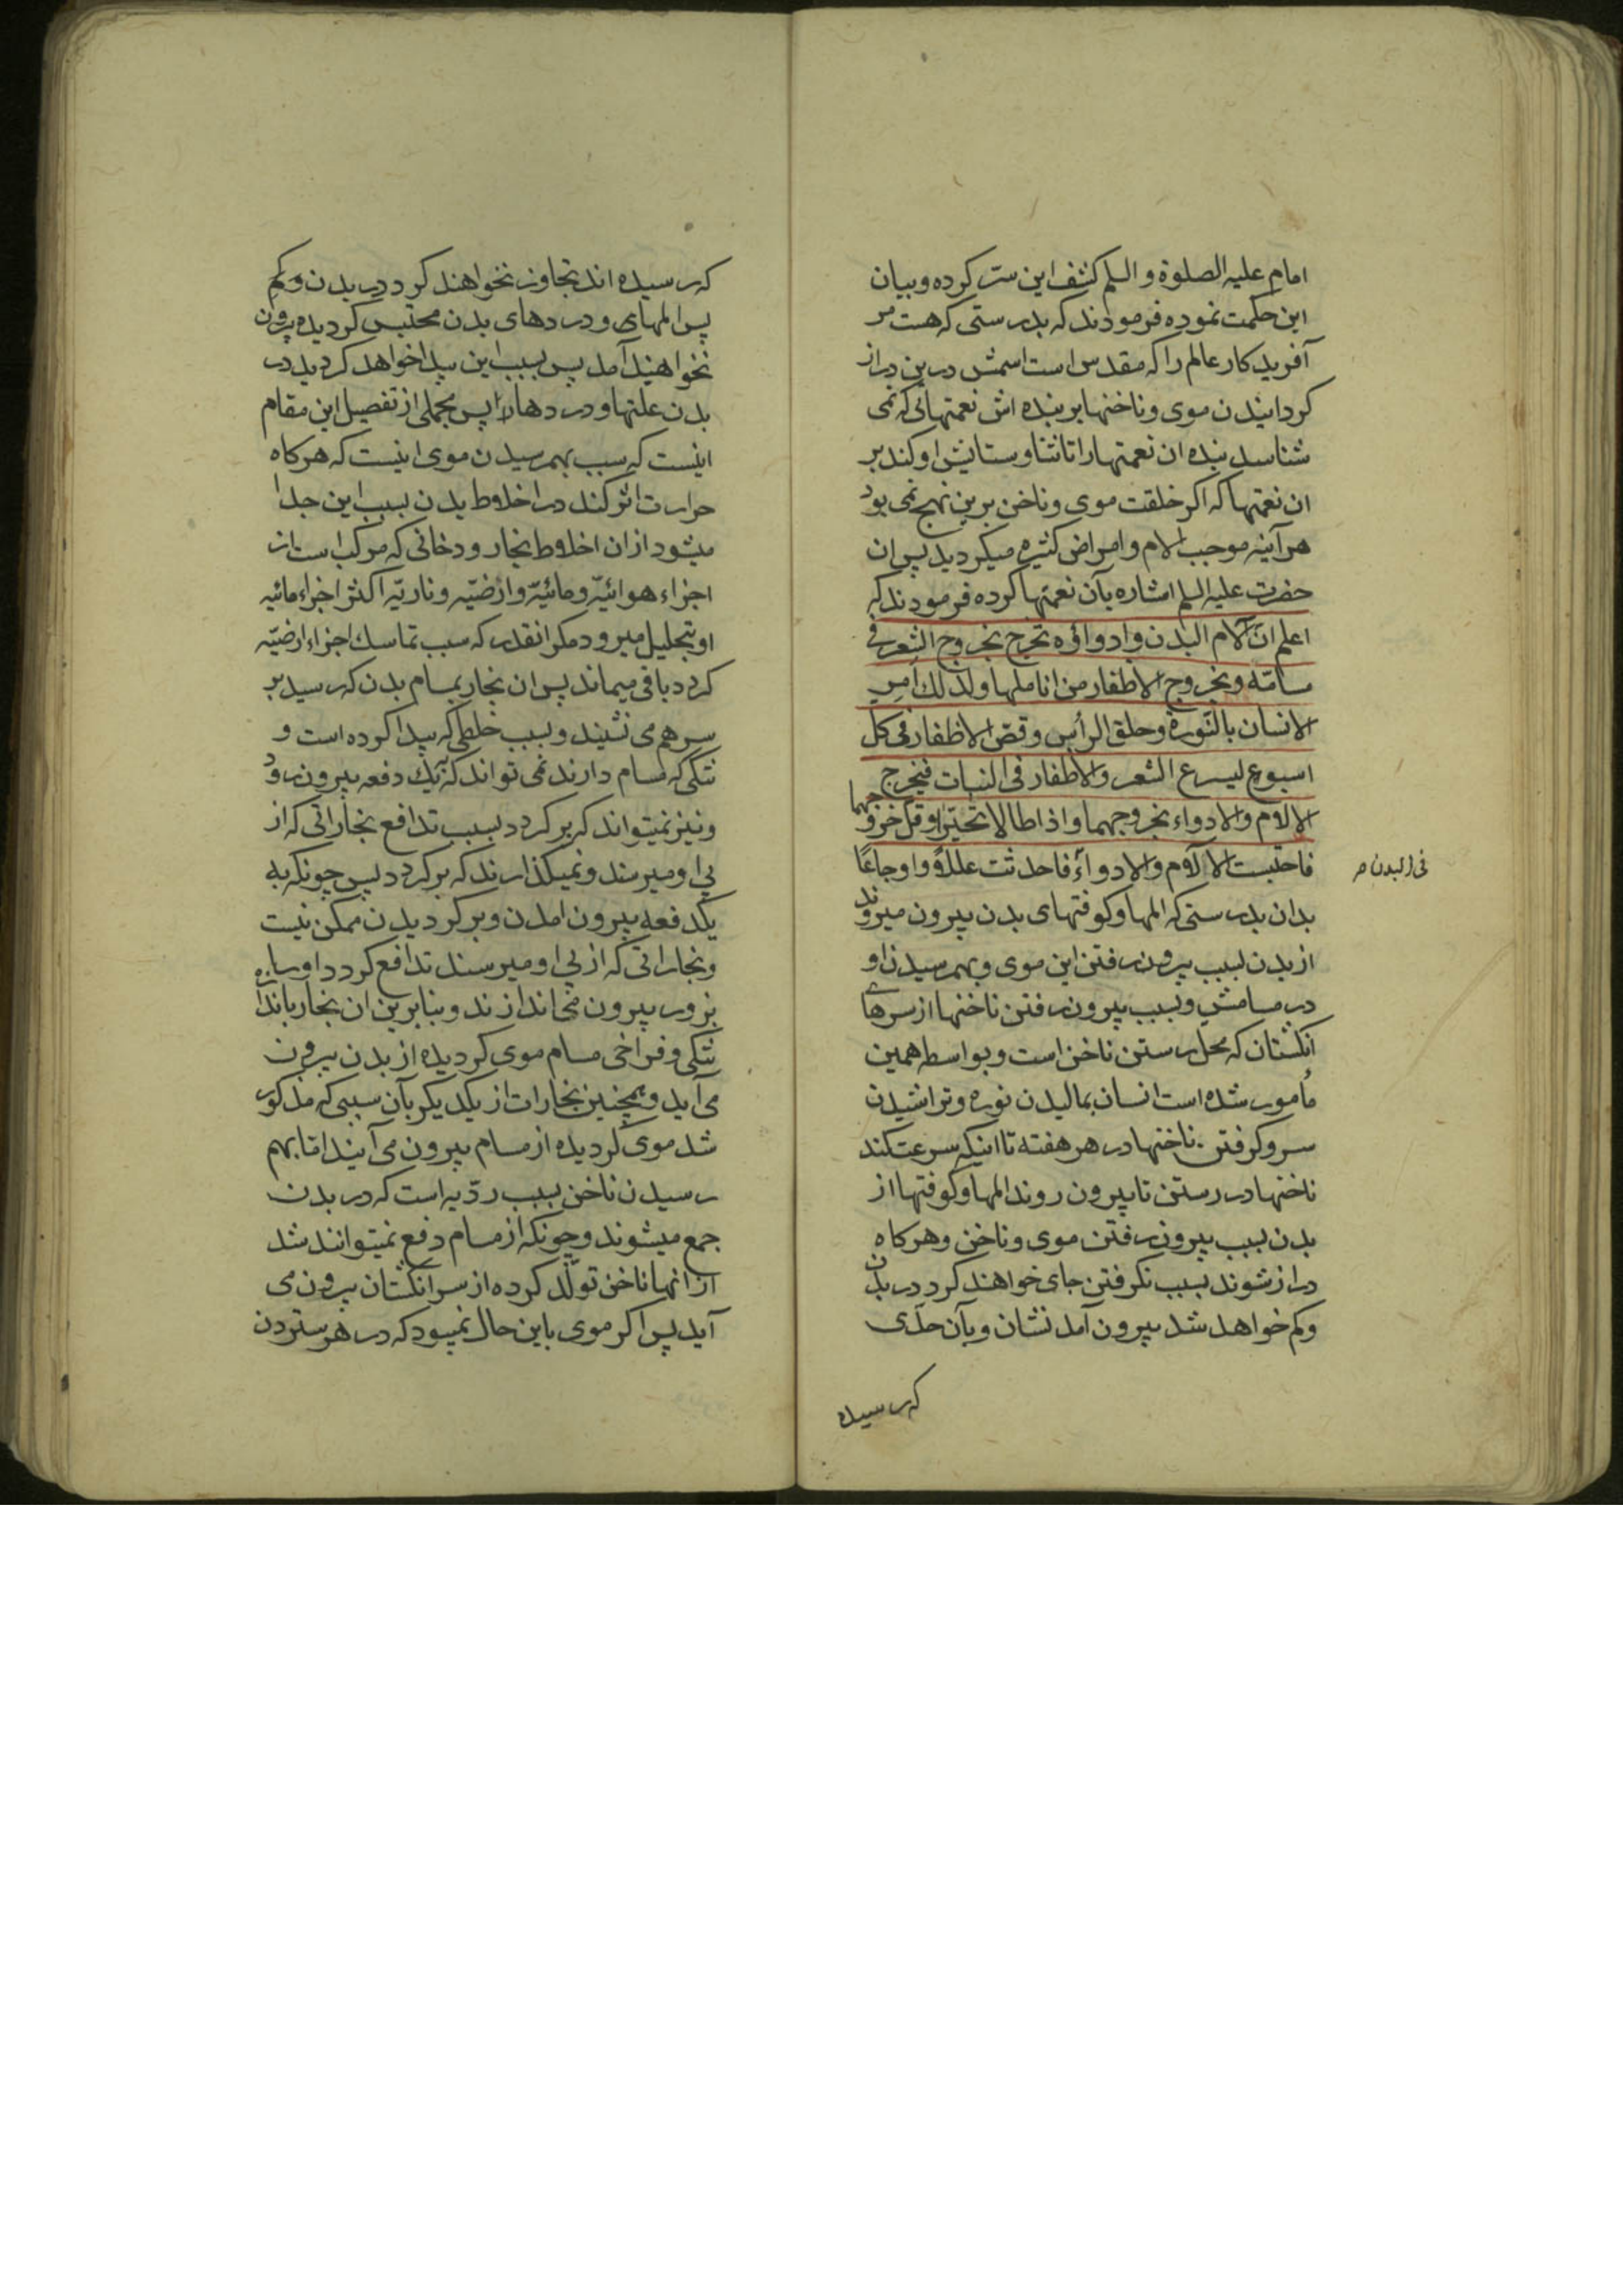 امام علیه الصلوة و السلم کشف این ستر کرده و بیان
این حکمت نموده فرمودند که بدرستی که هست مر
آفریدکار عالم را که مقدس است اسمش درین دراز
کردانیدن موی و ناخنها بر بنده اش نعمتهائی که نمی
شناسد بنده ان نعمتها را تا ثنا و ستایش او کند بر
ان نعمتها که اکر خلقت موی و ناخن برین نهج نمی بود
هرآینه موجب الام و امراض کثیره میکردید پس ان
حضرت علیه السلم اشاره بآن نعمتها کرده فرمودند که
اعلم انّ آلام البدن و ادوائه تخرج بخروج الشعر فی
مسامّه و بخروج الاظفار من اناملها و لذلک امر
الانسان بالنّورة و حلق الرأس و قصّ الاظفار فی کل
اسبوع لیسرع الشعر و الاظفار فی النبات فیخرج
الالآم و الادواء بخروجهما و اذا طالا تحیّرا و قلّ خروجهما
فاحتبست الالآم و الادوآء فاحدثت عللاً و اوجاعًا
فی البدن م
بدان بدرستی که المها و کوفتهای بدن بیرون میروند
از بدن بسبب بیرون رفتن این موی و بهمرسیدن او
در مسامش و بسبب بیرون رفتن ناخنها از سرهای
انکشتان که محل رستن ناخن است و بواسطه همین
مأمور شده است انسان بمالیدن نوره و تراشیدن
سر و کرفتن ناخنها در هر هفته تا اینکه سرعت کند
ناخنها در رستن تا بیرون روند المها و کوفتها از
بدن بسبب بیرون رفتن موی و ناخن و هرکاه
دراز شوند بسبب نکرفتن جای خواهند کرد در بدن
و کم خواهد شد بیرون آمدنشان و بآن حدّی
که رسیده
که رسیده اند تجاوز نخواهند کرد در بدن و کم
پس المهای و دردهای بدن محتبس کردیده بیرون
نخواهند آمد پس بسبب این پیدا خواهد کردید در
بدن علتها و دردها را پس مجملی از تفصیل این مقام
اینست که سبب بهمرسیدن موی اینست که هرکاه
حرارت اثر کند در اخلاط بدن بسبب این جدا
میشود از ان اخلاط بخار و دخانی که مرکب است از
اجزاء هوائیّه و مائیّه و ارضیّه و ناریّه اکثر اجزاء مائیه
او بتحلیل میرود مکر انقدر که سبب تماسک اجزاء ارضیّه
کردد باقی میماند پس ان بخار بمسام بدن که رسید بر
سر هم می نشیند و بسبب خلطی که پیدا کرده است و
تنکی که مسام دارند نمی تواند که بیک دفعه بیرون رود
و نیز نمیتواند که بر کردد بسبب تدافع بخاراتی که از
پی او میرسند و نمیکذارند که بر کردد پس چونکه به
یکدفعه بیرون امدن و بر کردیدن ممکن نیست
و بخاراتی که از پی او میرسند تدافع کردد او را
بزور بیرون می اندازند و بنابرین ان بخار باندازه
تنکی و فراخی مسام موی کردیده از بدن بیرون
می آید و همچنین بخارات از یکدیکر بآن سببی که مذکور
شد موی کردیده از مسام بیرون می آیند اما بهم
رسیدن ناخن بسبب ردّیه است که در بدن
جمع میشوند و چونکه از مسام دفع نمیتوانند شد
از انها ناخن تولّد کرده از سر انکشتان بیرون می
آید پس اکر موی باین حال نمیبود که در هر ستردن